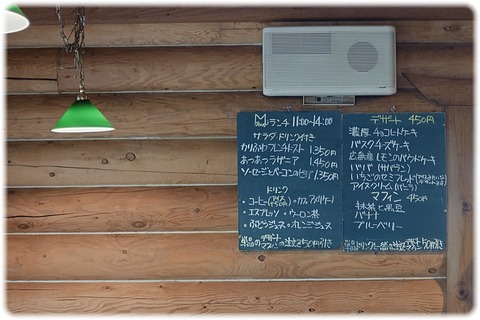 ランチ 11:00~14:00
サラダ・ドリンク付き
かりふわフレンチトースト 1,350円
あつあつラザニア 1,450円
ソーセージとベーコンのピザ 1,350円
・ドリンク
・コーヒー
・エスプレッソ ・ウーロン茶
・ぶどうジュース ・オレンジジュース
デザート 450円
濃厚チョコレートケーキ
バスクチーズケーキ
広島産レモンのパウンドケーキ
ババ(サバラン)
いちごのセミフレッド
アイスクリーム(バニラ)
マフィン 450円
抹茶と黒豆
バナナ
ブルーベリー